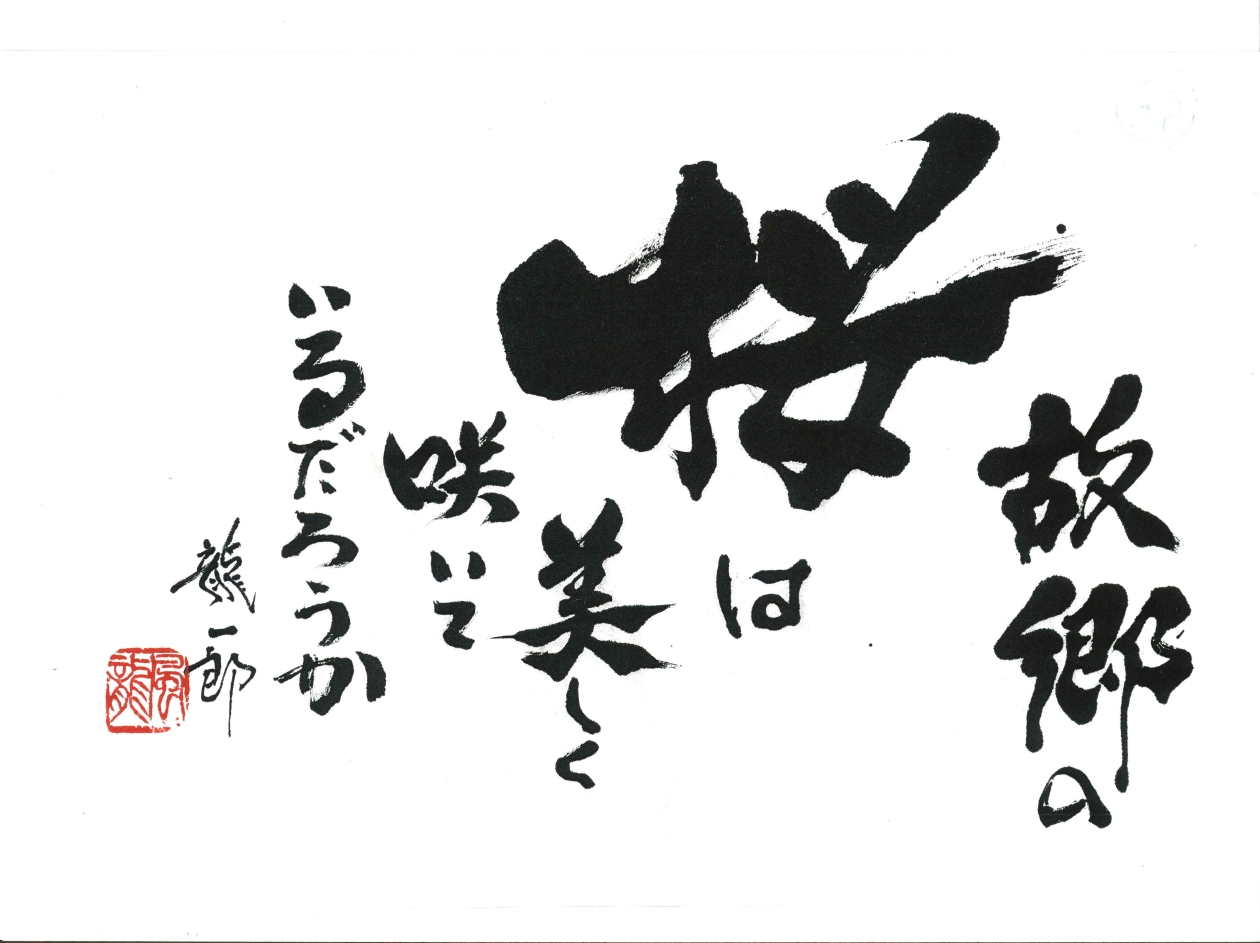 故郷の
桜は
美しく
咲いて
いるだろうか
龍一郎
風龍